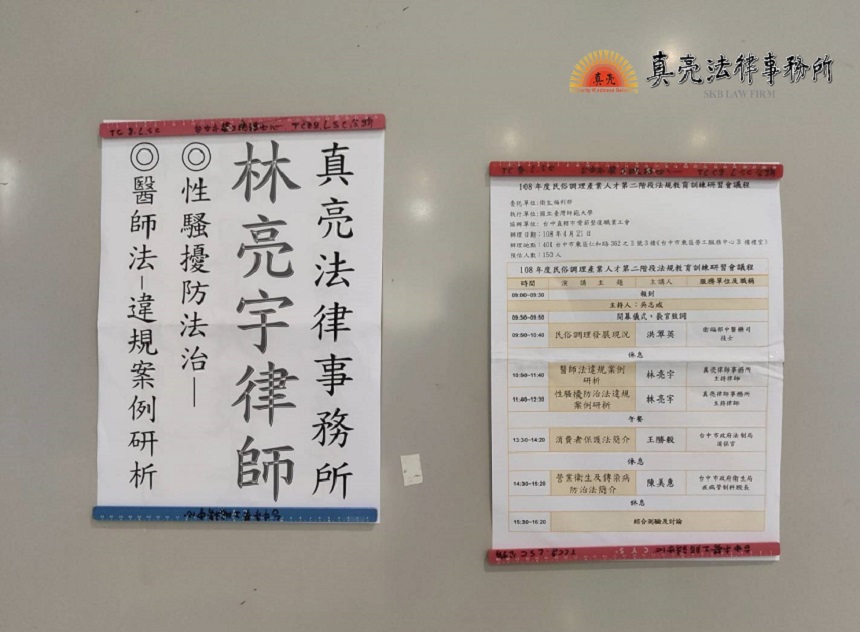 真亮
真亮法律事務所
SKB LAW FIRM
真亮法律事務所
林亮宇律師
◎性騷擾防治法—
◎醫師法–違規案例研析
108年度民俗調理產業人才第二階段法規教育訓練研習會議程
委託單位:衛生福利部
執行單位:國立臺灣師範大學
協辦單位:台中直轄市骨節整復職業工會
辦理日期:108年4月21日
辦理地點:401台中市東區仁和路362之3號3樓(台中市東區勞工服務中心3樓禮堂)
預估人數:150人
108年度民俗調理產業人才第二階段法規教育訓練研習會議程
時間 演講主題 主講人 服務單位及職稱
09:00~09:30 報到
主持人:吳志成
09:30~09:50 開幕儀式、長官致詞
09:50~10:40 民俗調理發展現況 洪翠英 衛福部中醫藥司
技士
休息
10:50~11:40 醫師法違規案例
研析 林亮宇 真亮律師事務所
主持律師
11:40~12:30 性騷擾防治法違規
案例研析 林亮宇 真亮律師事務所
主持律師
午餐
13:30~14:20 消費者保護法簡介 王勝毅 台中市政府法制局
消保官
休息
14:30~15:20 營業衛生及傳染病
防治法簡介 陳美惠 台中市政府衛生局
疾病管制科股長
休息
15:30~16:20 綜合測驗及討論